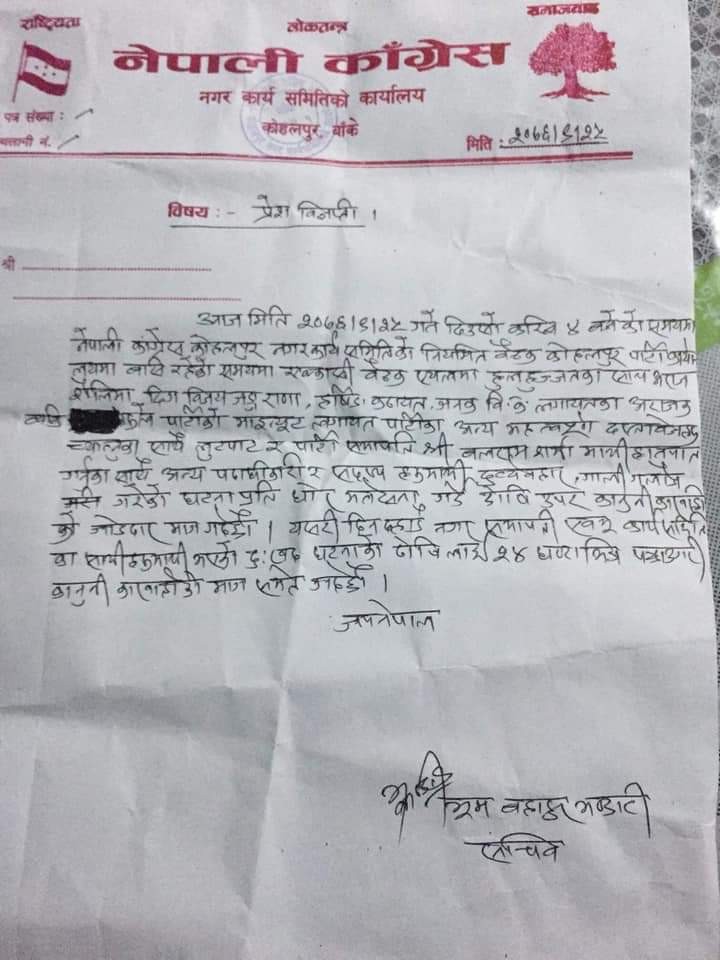 राष्ट्रियता
लोकतन्त्र
समाजवाद
नेपाली काँग्रेस
नगर कार्य समितिको कार्यालय
कोहलपुर, बाँके
पत्र संख्या :
चलानी नं.
मिति : २०७६।९।२५
विषय :- प्रेश विज्ञप्ती ।
श्री
आज मिति २०७६।९।२५ गते दिउसो करिव ४ बजेको समयमा
नेपाली काँग्रेस कोहलपुर नगर कार्य समितिको नियमित बैठक कोहलपुर पार्टी कार्या
लयमा बसि रहेको समयमा एक्कासी बैठक स्थलमा हुलहुज्जतका साथ
दिग विजय जङ्ग राणा, हर्षिड कठायत, जनक वि.क. लगायतका अराजक
पार्टीको माइन्यूट लगायत पार्टीका अन्य महत्वपूर्ण दस्तावेजहरू
च्यातचुत साथै लुटपाट र पार्टी सभापति श्री बालाराम शर्मा माथी हातपात
गर्नुका साथै अन्य पदाधीकारी र सदस्य हरूमाथी दुर्व्यवहार, गाली गलौज
गरेको घटना प्रति घोर भर्त्सना गर्दै दोषि उपर कानुनी कारवाही
को जोडदार माग गर्दछौ । यसरी दिन दहाडै नगर सभापती एवम कार्य समिति
का साथी हरूमाथी भएको दुःखद घटनाको दोषि लाई २४ घण्टा भित्र पक्राउ गरी
कानुनी कारवाहीको माग समेत गर्दछौ ।
जय नेपाल
भिम बहादुर भण्डारी
सचिव